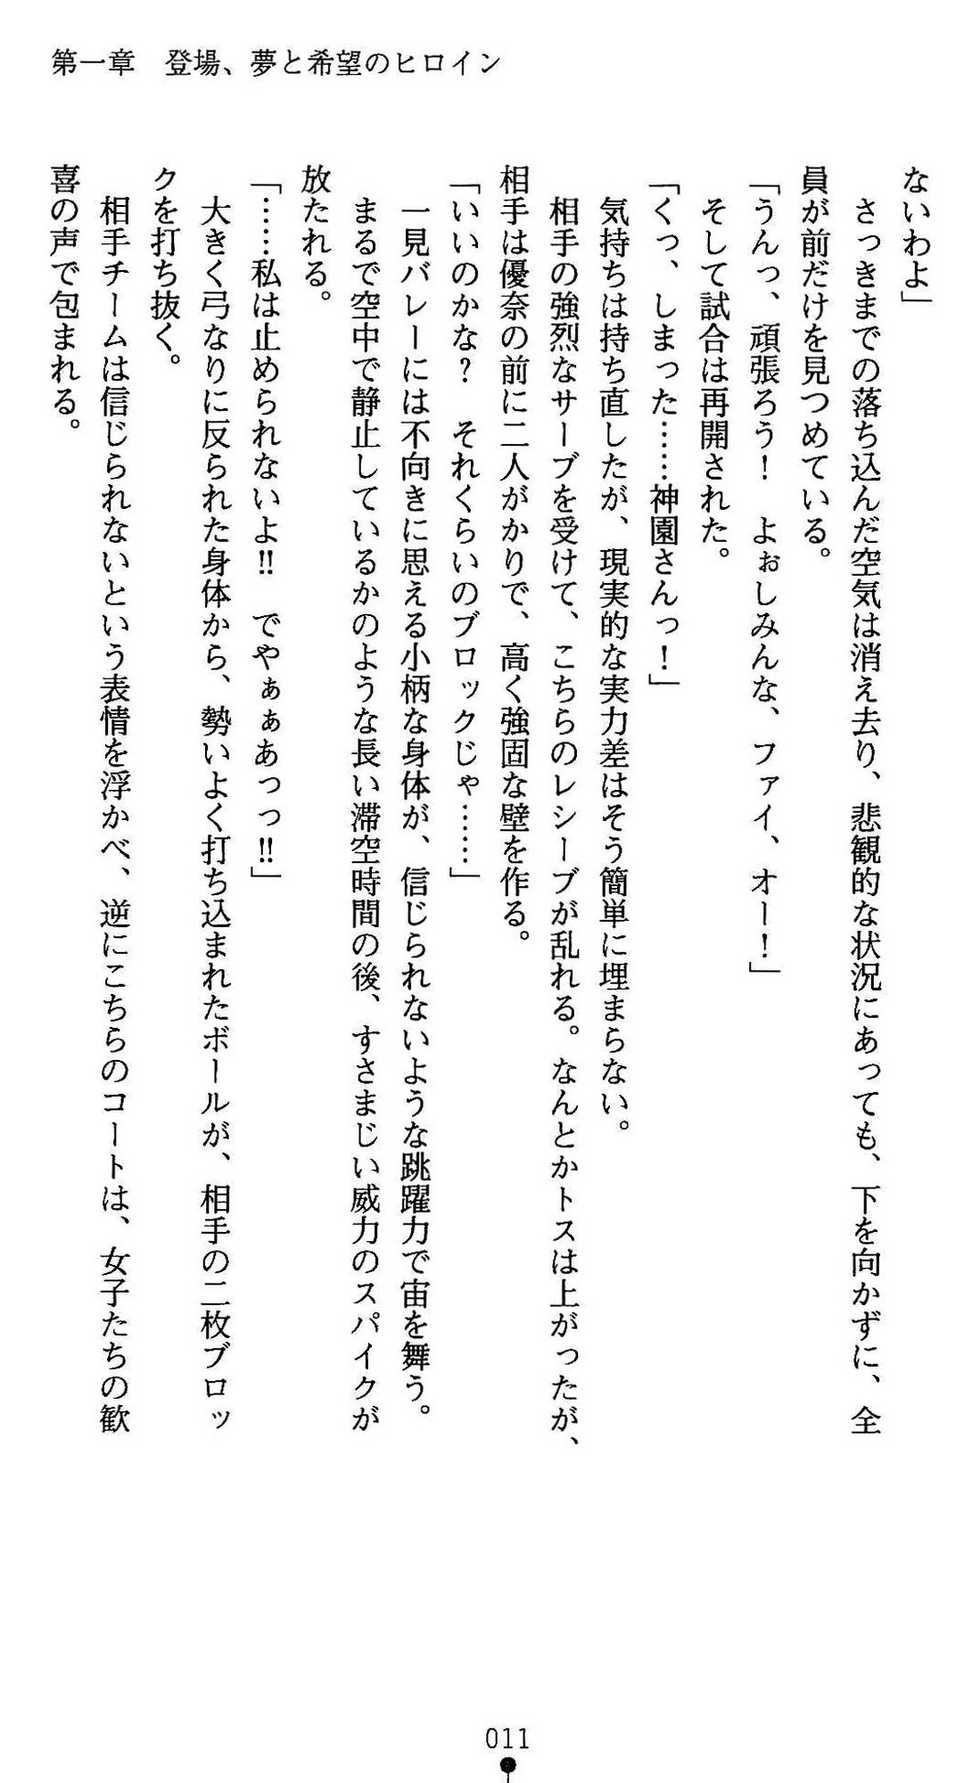 第一章　登場、夢と希望のヒロイン
ないわよ」
　さっきまでの落ち込んだ空気は消え去り、悲観的な状況にあっても、下を向かずに、全
員が前だけを見つめている。
「うんっ、頑張ろう！　よぉしみんな、ファイ、オー！」
　そして試合は再開された。
「くっ、しまった……神園さんっ！」
　気持ちは持ち直したが、現実的な実力差はそう簡単に埋まらない。
　相手の強烈なサーブを受けて、こちらのレシーブが乱れる。なんとかトスは上がったが、
相手は優奈の前に二人がかりで、高く強固な壁を作る。
「いいのかな？　それくらいのブロックじゃ……」
　一見バレーには不向きに思える小柄な身体が、信じられないような跳躍力で宙を舞う。
　まるで空中で静止しているかのような長い滞空時間の後、すさまじい威力のスパイクが
放たれる。
「……私は止められないよ‼　でやぁぁあっっ‼」
　大きく弓なりに反られた身体から、勢いよく打ち込まれたボールが、相手の二枚ブロッ
クを打ち抜く。
　相手チームは信じられないという表情を浮かべ、逆にこちらのコートは、女子たちの歓
喜の声で包まれる。
011